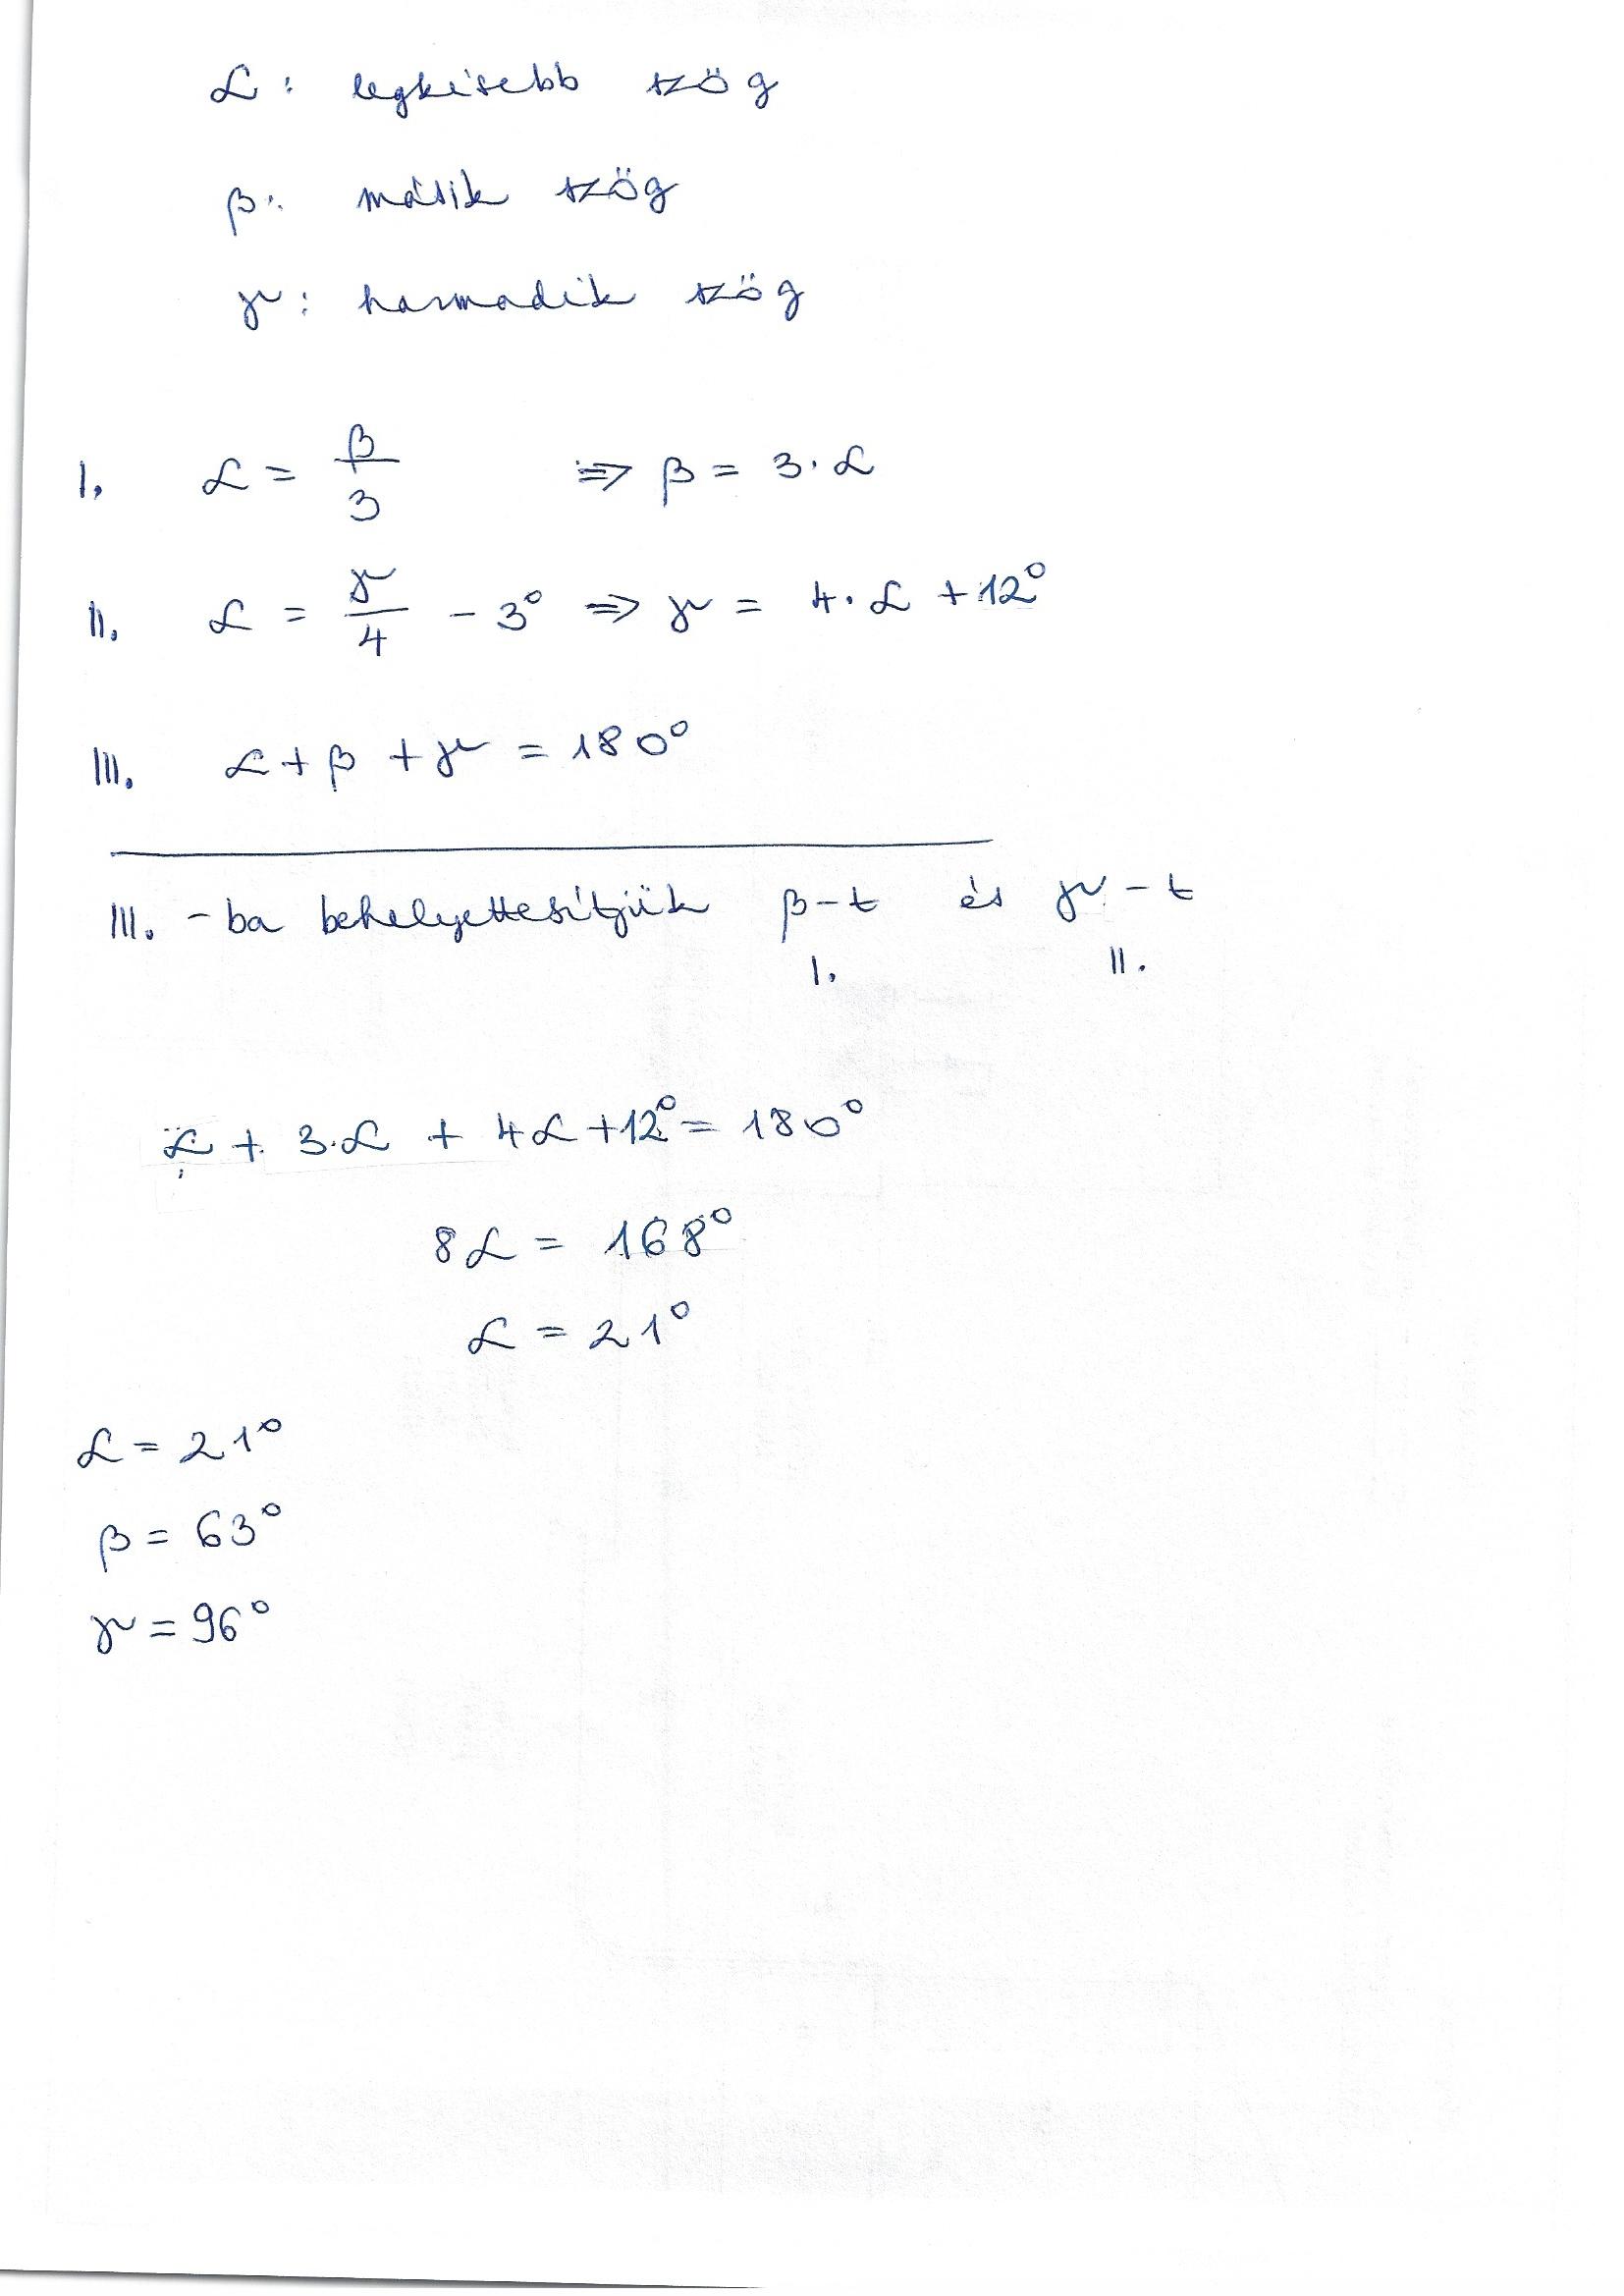 α: legkisebb szög
β: másik szög
γ: harmadik szög
I. α = β/3 ⇒ β = 3·α
II. α = γ/4 - 3° ⇒ γ = 4·α + 12°
III. α + β + γ = 180°
III. -ba behelyettesítjük β-t és γ-t
I. II.
α + 3·α + 4α + 12° = 180°
8α = 168°
α = 21°
α = 21°
β = 63°
γ = 96°